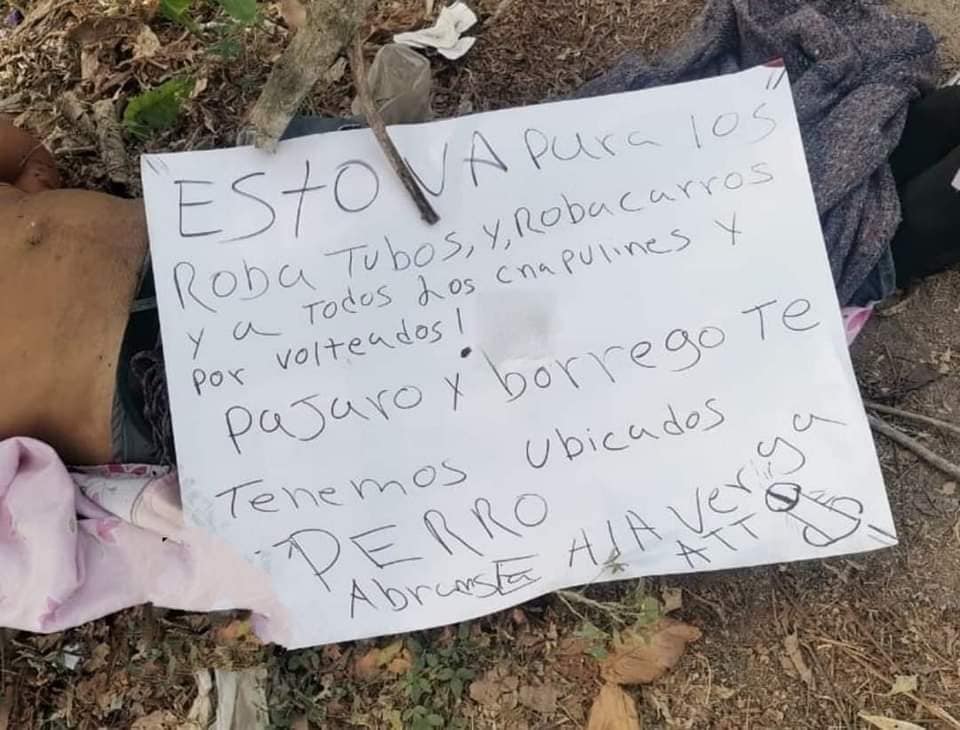 ESTO VA para los
Roba Tubos, y, Robacarros
y a Todos Los chapulines y
por volteados!
Pajaro y borrego Te
Tenemos ubicados
PERRO
AbransE AlA Verga ya
ATT